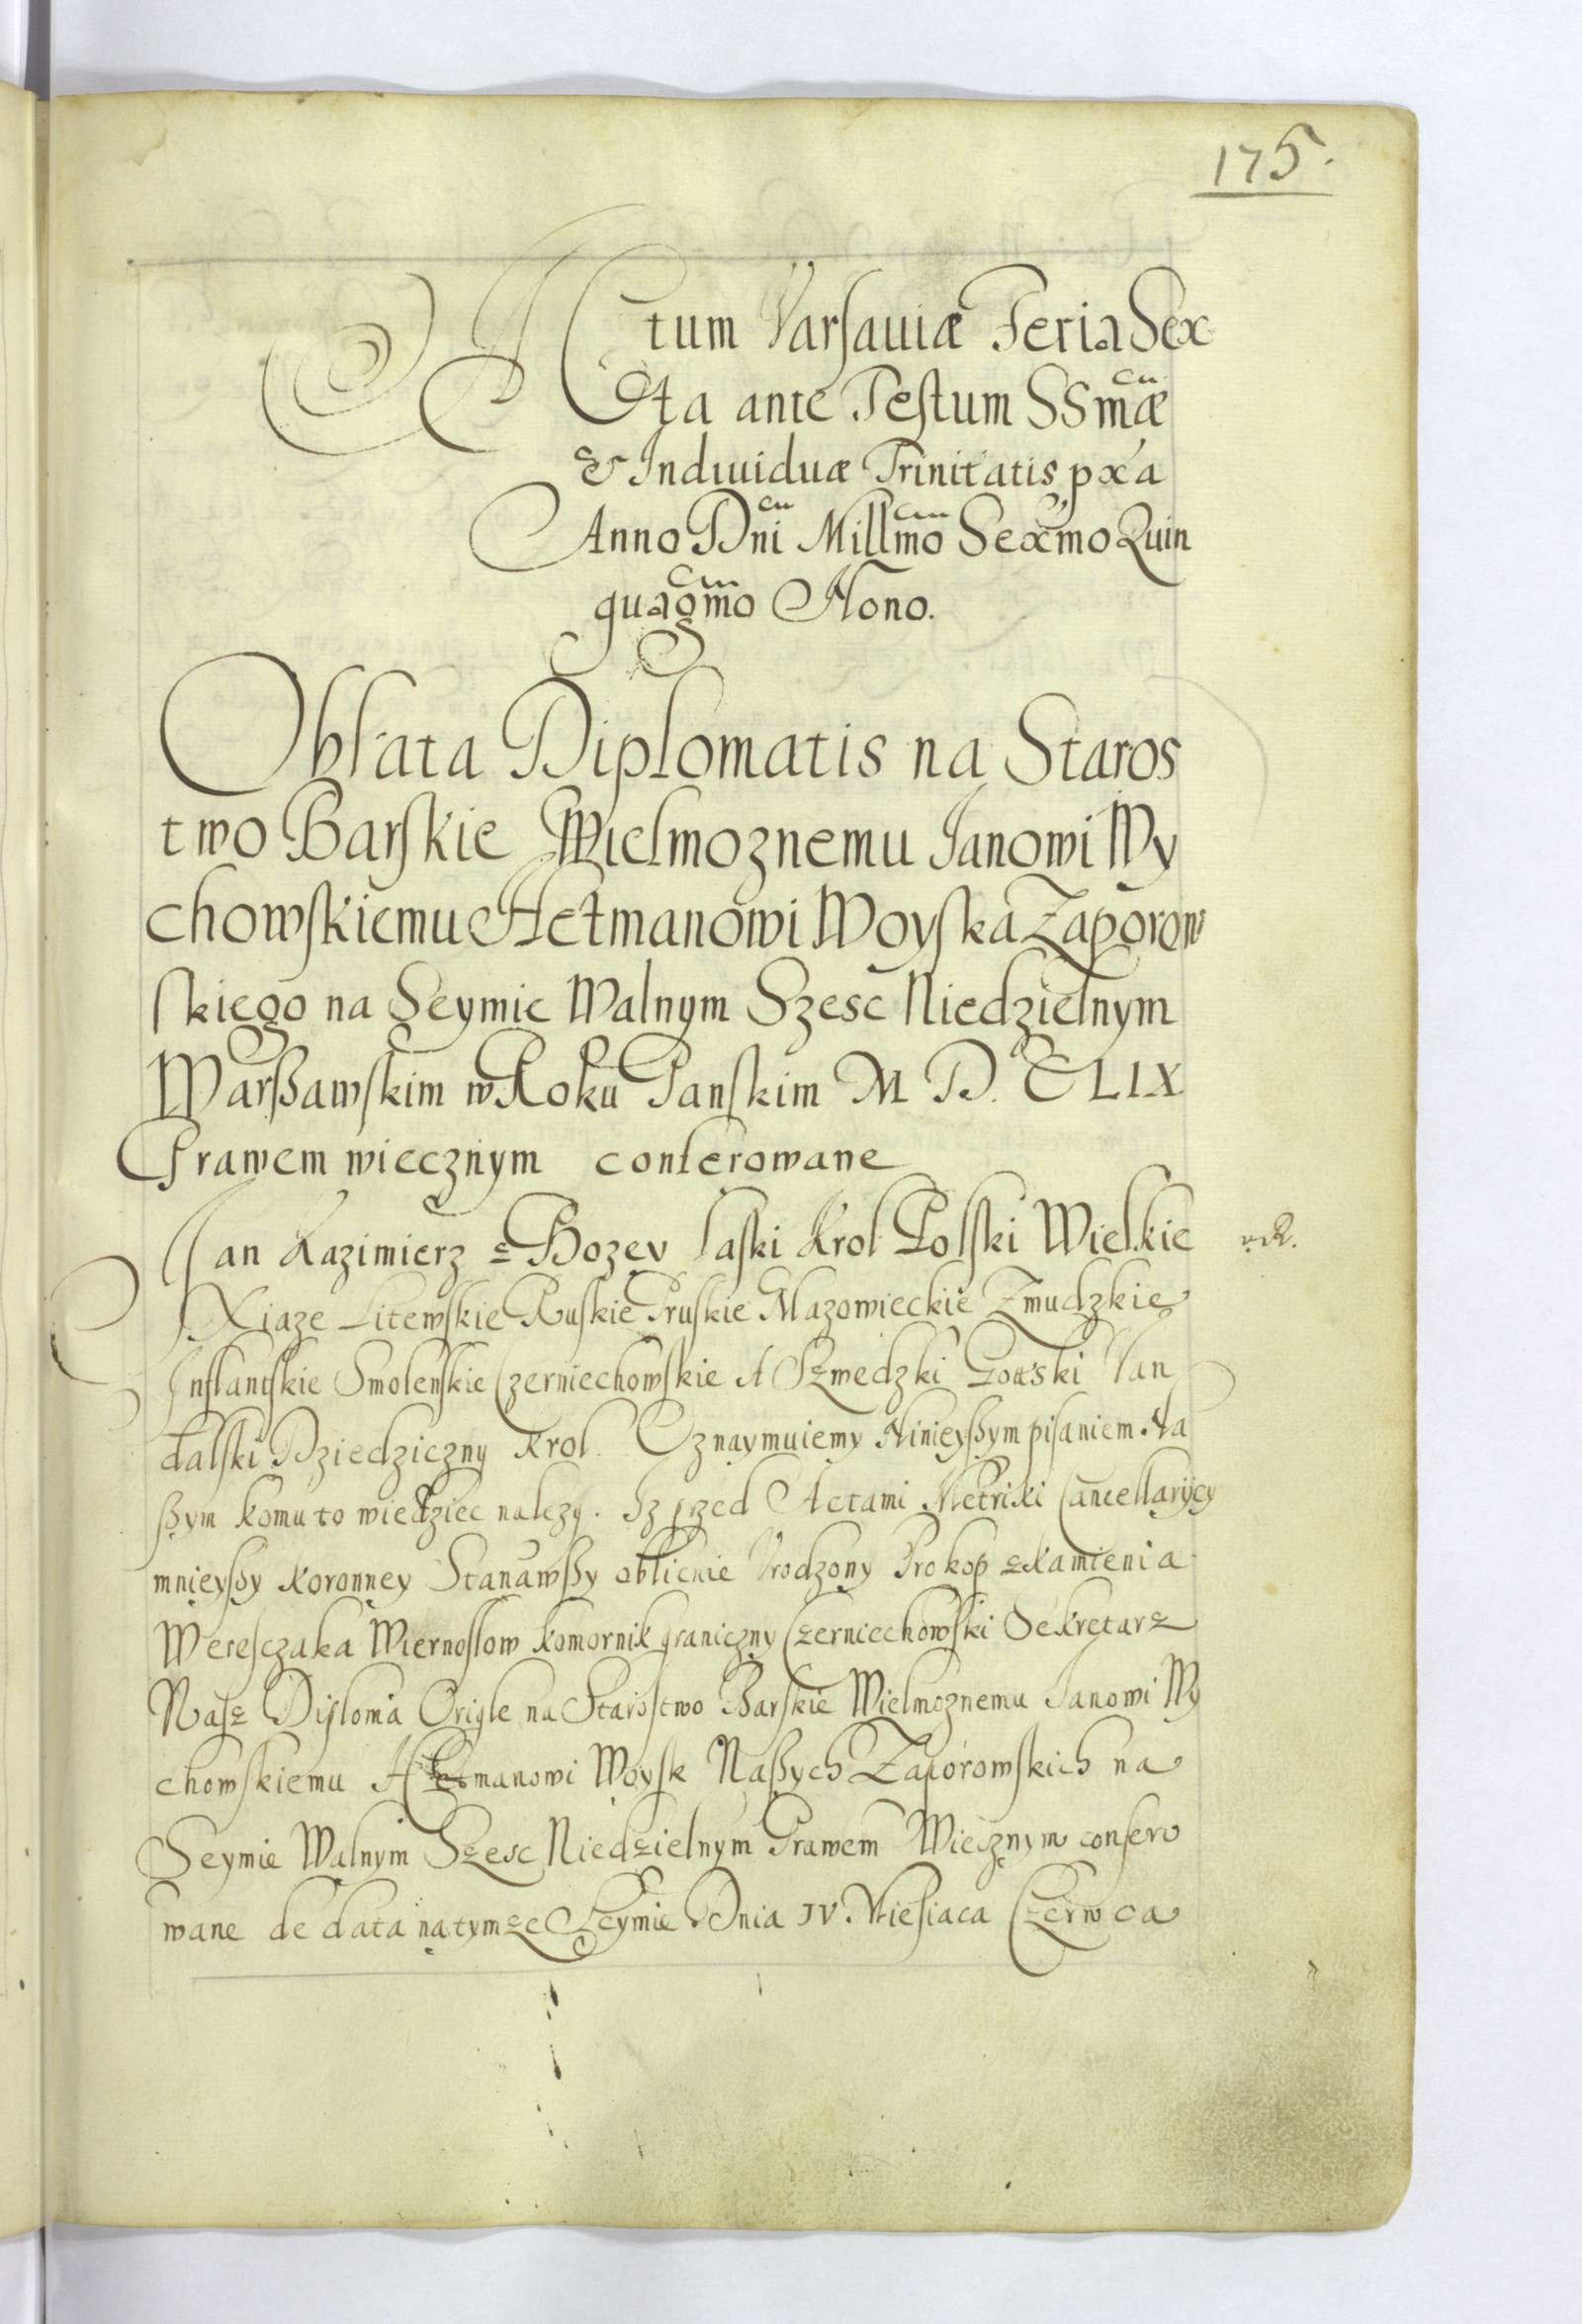 175.
Actum Varsauiæ Feria Sex
ta ante Festum SSmæ
& Indiuiduæ Trinitatis pxa
Anno Dni Millmo Sexmo Quin
quagmo Nono.
Oblata Diplomatis na Staros
two Barskie Wielmoznemu Janowi Wy
chowskiemu Hetmanowi Woyska Zaporow
skiego na Seymie Walnym Szesc Niedzielnym
Warßawskim w Roku Panskim M. D. C LIX
Prawem wiecznym conferowane
Jan Kazimierz z Bozey laski Krol Polski Wielkie
Xiaze Litewskie Ruskie Pruskie Mazowieckie Zmudzkie
Inflantskie Smolenskie Czerniechowskie A Szwedzki Gottski Van
dalski Dziedziczny Krol. Oznaymuiemy Ninieyßym pisaniem Na
ßym komu to wiedziec nalezy. Iz przed Actami Metriki Cancellaryey
mnieyßy Koronney Stanawßy oblicnie Vrodzony Prokop z Kamienia
Weresczaka Wiernoslow Komornik graniczny Czerniechowski Sekretarz
Nasz Diploma Origle na Starostwo Barskie Wielmoznemu Janowi Wy
chowskiemu Hetmanowi Woysk Naßych Zaporowskich na
Seymie Walnym Szesc Niedzielnym Prawem Wiecznym confero
wane de data na tymze Seymie Dnia IV. Miesiaca Czerwca